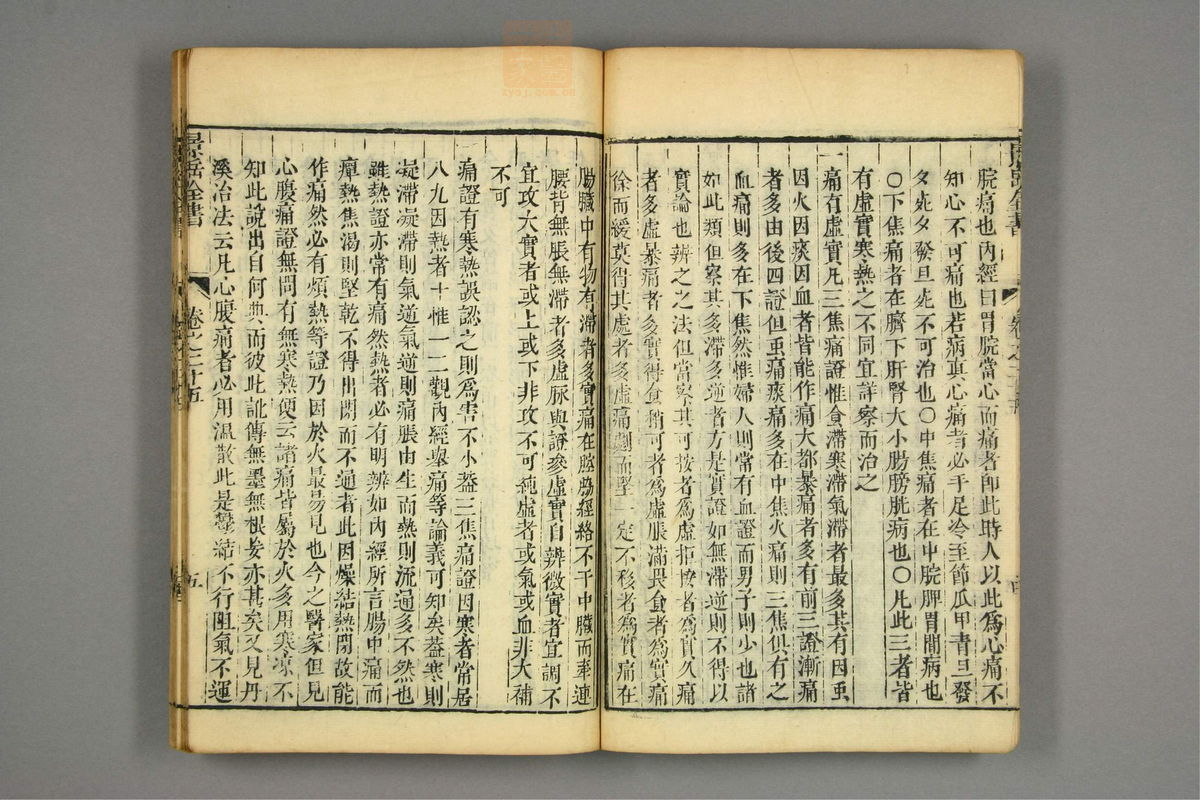 脘痛也內經曰胃脘當心而痛者即此時人以此為心痛不
知心不可痛也若病眞心痛者必手足冷至節爪甲青旦發
夕死夕發旦死不可治也〇中焦痛者在中脘脾胃間病也
〇下焦痛者在臍下肝腎大小腸膀胱病也〇凡此三者皆
有虛實寒熱之不同宜詳察而治之
一痛有虛實凡三焦痛證惟食滯寒滯氣滯者最多其有因虫
因火因痰因血者皆能作痛大都暴痛者多有前三證漸痛
者多由後四證但虫痛痰痛多在中焦火痛則三焦俱有之
血痛則多在下焦然惟婦人則常有血證而男子則少也諸
如此類但察其多滯多逆者方是實證如無滯逆則不得以
實論也辨之之法但當察其可按者為虛拒按者為實久痛
者多虛暴痛者多實得食稍可者為虛脹滿畏食者為實痛
徐而緩莫得其處者多虛痛劇而堅一定不移者為實痛在
腸臟中有物有滯者多實痛在腔脇經絡不干中臟而牽連
腰背無脹無滯者多虛脉與證參虛實自辨微實者宜調不
宜攻大實者或上或下非攻不可純虛者或氣或血非大補
不可
痛證有寒熱誤認之則為害不小蓋三焦痛證因寒者常居
八九因熱者十惟一二觀內經舉痛等論義可知矣蓋寒則
凝滯凝滯則氣逆氣逆則痛脹由生而熱則流通多不然也
雖熱證亦常有痛然熱者必有明辨如內經所言腸中痛而
癉熱焦渴則堅乾不得出閉而不通者此因燥結熱閉故能
作痛然必有煩熱等證乃因於火最易見也今之醫家但見
心腹痛證無問有無寒熱便云諸痛皆屬於火多用寒涼不
知此說出自何典而彼此訛傳無墨無根妄亦甚矣又見丹
溪治法云凡心腹痛者必用温散此是鬱結不行阻氣不運
景岳全書
卷之二十五
五